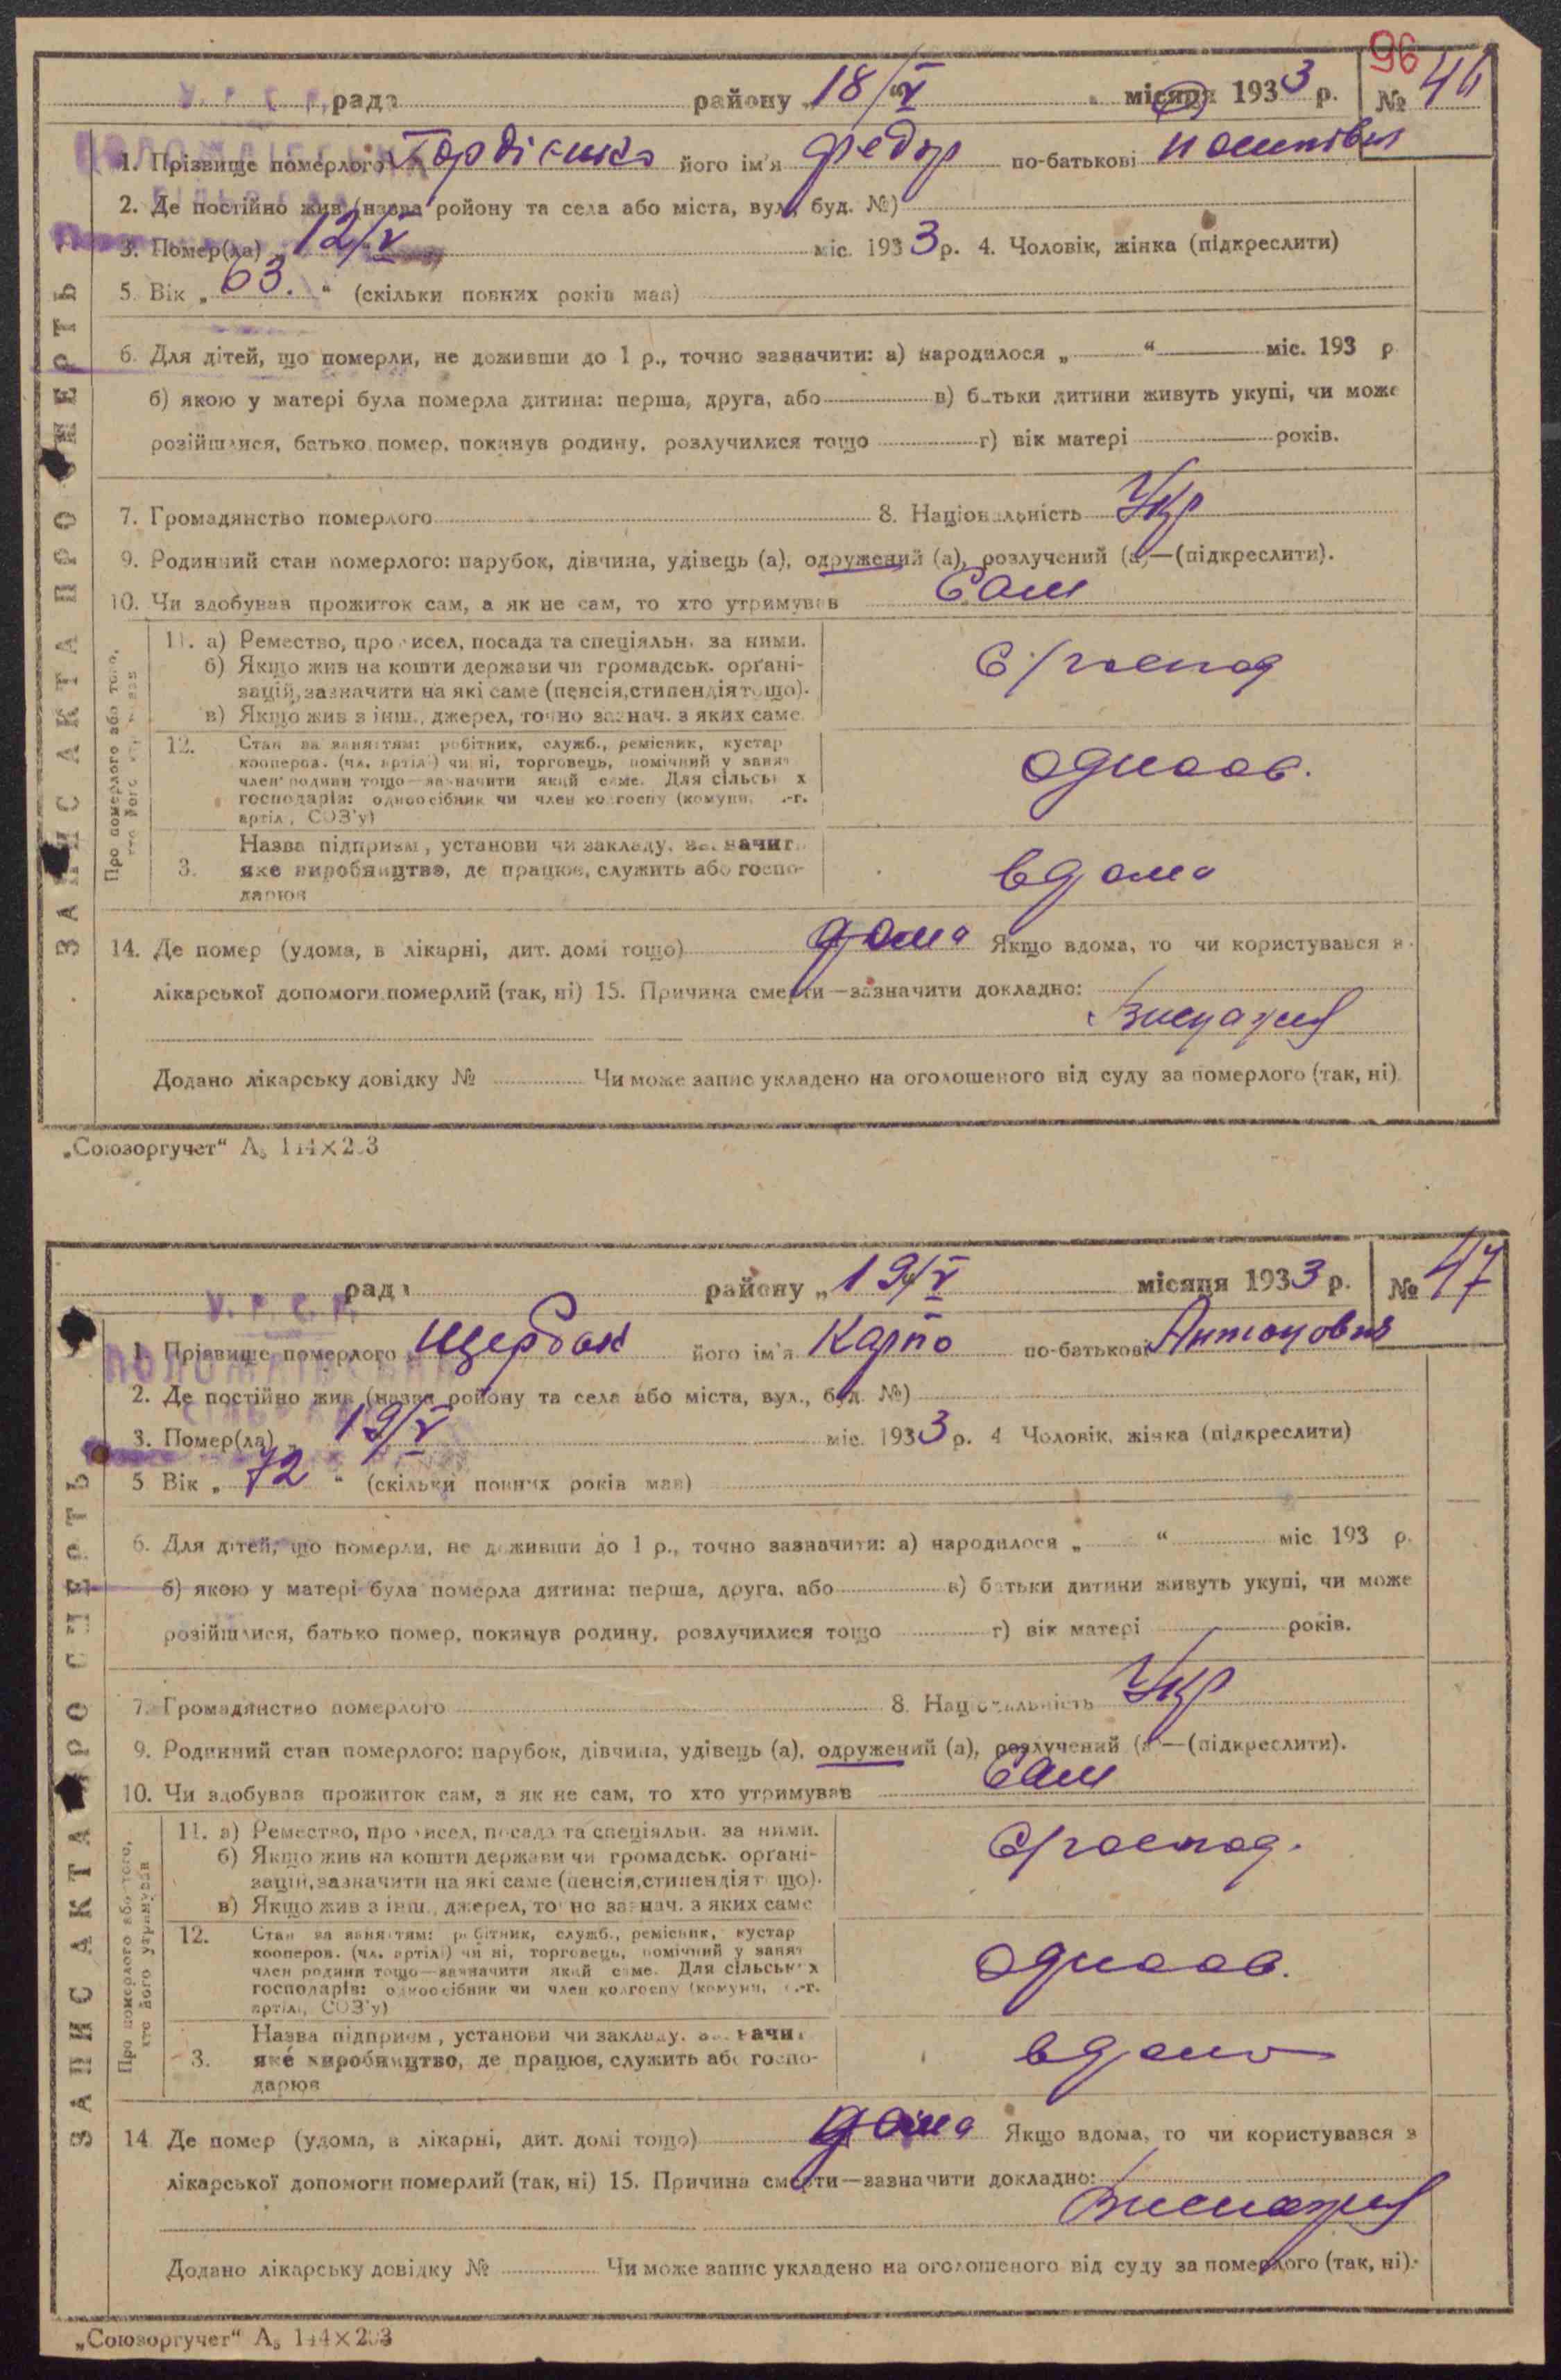 96
У. Р. С. Р.
рада району „18/V“ місяця 1933 р. № 46
1. Прізвище померлого Гордієнко його ім'я Федор по-батькові
2. Де постійно жив (назва ройону та села або міста, вул., буд. №)
3. Помер(ла) 12/V міс. 1933 р. 4. Чоловік, жінка (підкреслити)
5. Вік „63.“ (скільки повних років мав)
6. Для дітей, що померли, не доживши до 1 р., точно зазначити: а) народилося „ “ міс. 193 р.
б) якою у матері була померла дитина: перша, друга, або в) батьки дитини живуть укупі, чи може
розійшлися, батько помер, покинув родину, розлучилися тощо г) вік матері років.
7. Громадянство померлого 8. Національність Укр
9. Родинний стан померлого: парубок, дівчина, удівець (а), одружений (а), розлучений (а)—(підкреслити).
10. Чи здобував прожиток сам, а як не сам, то хто утримував Сам
11. а) Ремество, промисел, посада та спеціяльн. за ними.
б) Якщо жив на кошти держави чи громадськ. орґані-
зацій, зазначити на які саме (пенсія, стипендія тощо).
в) Якщо жив з інш., джерел, точно зазнач. з яких саме
С/господ
12. Стан за заняттям: робітник, служб., ремісник, кустар
кооперов. (чл. артілі) чи ні, торговець, помічний у занят.
член родини тощо—зазначити який саме. Для сільських
господарів: одноосібник чи член колгоспу (комуни, с.-г.
артіл., СОЗ'у)
одноос.
3. Назва підприєм., установи чи закладу, зазначит.
яке виробництво, де працює, служить або госпо-
дарює
вдома
14. Де помер (удома, в лікарні, дит. домі тощо) дома Якщо вдома, то чи користувався з
лікарської допомоги померлий (так, ні) 15. Причина смерти—зазначити докладно:
Додано лікарську довідку № Чи може запис укладено на оголошеного від суду за померлого (так, ні).
ЗАПИС АКТА ПРО СМЕРТЬ
Про померлого або того,
хто його утримував
„Союзоргучет“ А₅ 144×203
У. Р. С. Р.
рада району „19/V місяця 1933 р. № 47
1. Прізвище померлого Щербак його ім'я Карпо по-батькові Антонович
2. Де постійно жив (назва ройону та села або міста, вул., буд. №)
3. Помер(ла) 19/V міс. 1933 р. 4 Чоловік, жінка (підкреслити)
5 Вік „72“ (скільки повних років мав)
6. Для дітей, що померли, не доживши до 1 р., точно зазначити: а) народилося „ “ міс 193 р.
б) якою у матері була померла дитина: перша, друга, або в) батьки дитини живуть укупі, чи може
розійшлися, батько помер, покинув родину, розлучилися тощо г) вік матері років.
7. Громадянство померлого 8. Національність Укр
9. Родинний стан померлого: парубок, дівчина, удівець (а), одружений (а), розлучений (а)—(підкреслити).
10. Чи здобував прожиток сам, а як не сам, то хто утримував Сам
11. а) Ремество, промисел, посада та спеціяльн. за ними.
б) Якщо жив на кошти держави чи громадськ. орґані-
зацій, зазначити на які саме (пенсія, стипендія тощо).
в) Якщо жив з інш., джерел, точно зазнач. з яких саме
С/господ.
12. Стан за заняттям: робітник, служб., ремісник, кустар
кооперов. (чл. артілі) чи ні, торговець, помічний у занят.
член родини тощо—зазначити який саме. Для сільських
господарів: одноосібник чи член колгоспу (комуни, с.-г.
артілі, СОЗ'у)
одноос.
3. Назва підприєм., установи чи закладу, зазначит.
яке виробництво, де працює, служить або госпо-
дарює
вдома
14 Де помер (удома, в лікарні, дит. домі тощо) дома Якщо вдома, то чи користувався з
лікарської допомоги померлий (так, ні) 15. Причина смерти—зазначити докладно:
Додано лікарську довідку № Чи може запис укладено на оголошеного від суду за померлого (так, ні).
ЗАПИС АКТА ПРО СМЕРТЬ
Про померлого або того,
хто його утримував
„Союзоргучет“ А₅ 144×203